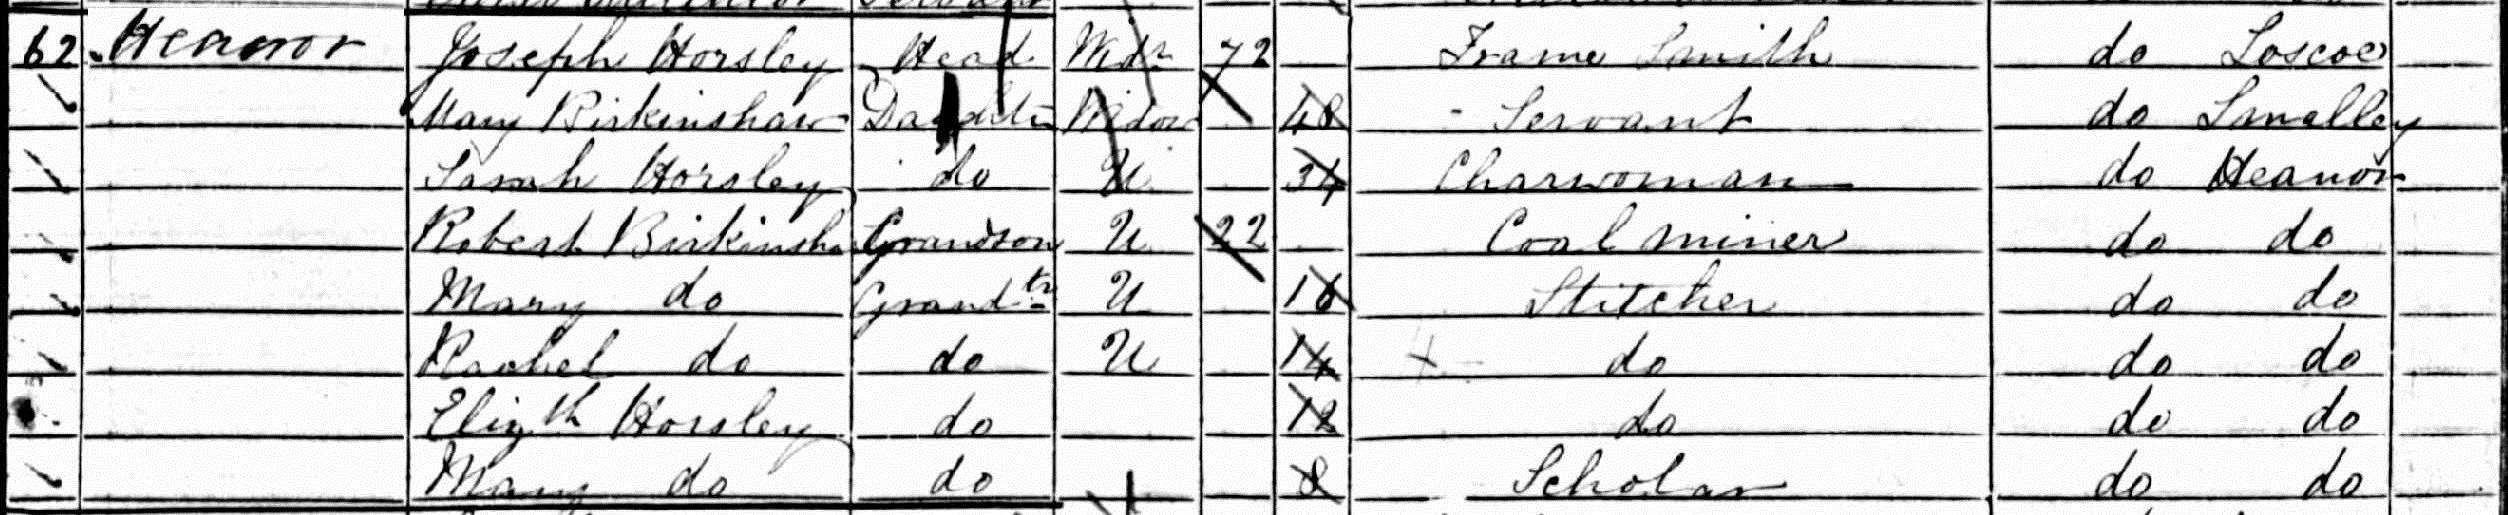 62 Heanor Joseph Horsley Head Widr 72 Frame Smith do Loscoe
Mary Birkinshaw Daughter Widow 48 Servant do Smalley
Sarah Horsley do U 34 Charwoman do Heanor
Robert Birkinsha Grandson U 22 Coal miner do do
Mary do Grandtr U 16 Stitcher do do
Rachel do do U 14 do do do
Elizth Horsley do 12 do do do
Mary do do 8 Scholar do do